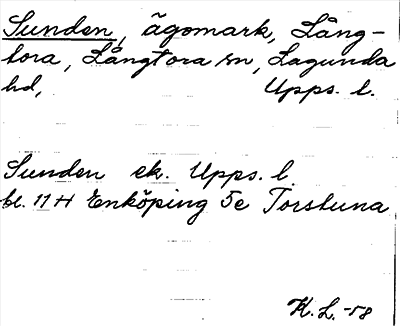 Sunden, ägomark, Lång-
tora, Långtora sn, Lagunda
hd, Upps. l.
Sunden ek. Upps. l
bl. 11 H Enköping 5e Torstuna
K. L. -58